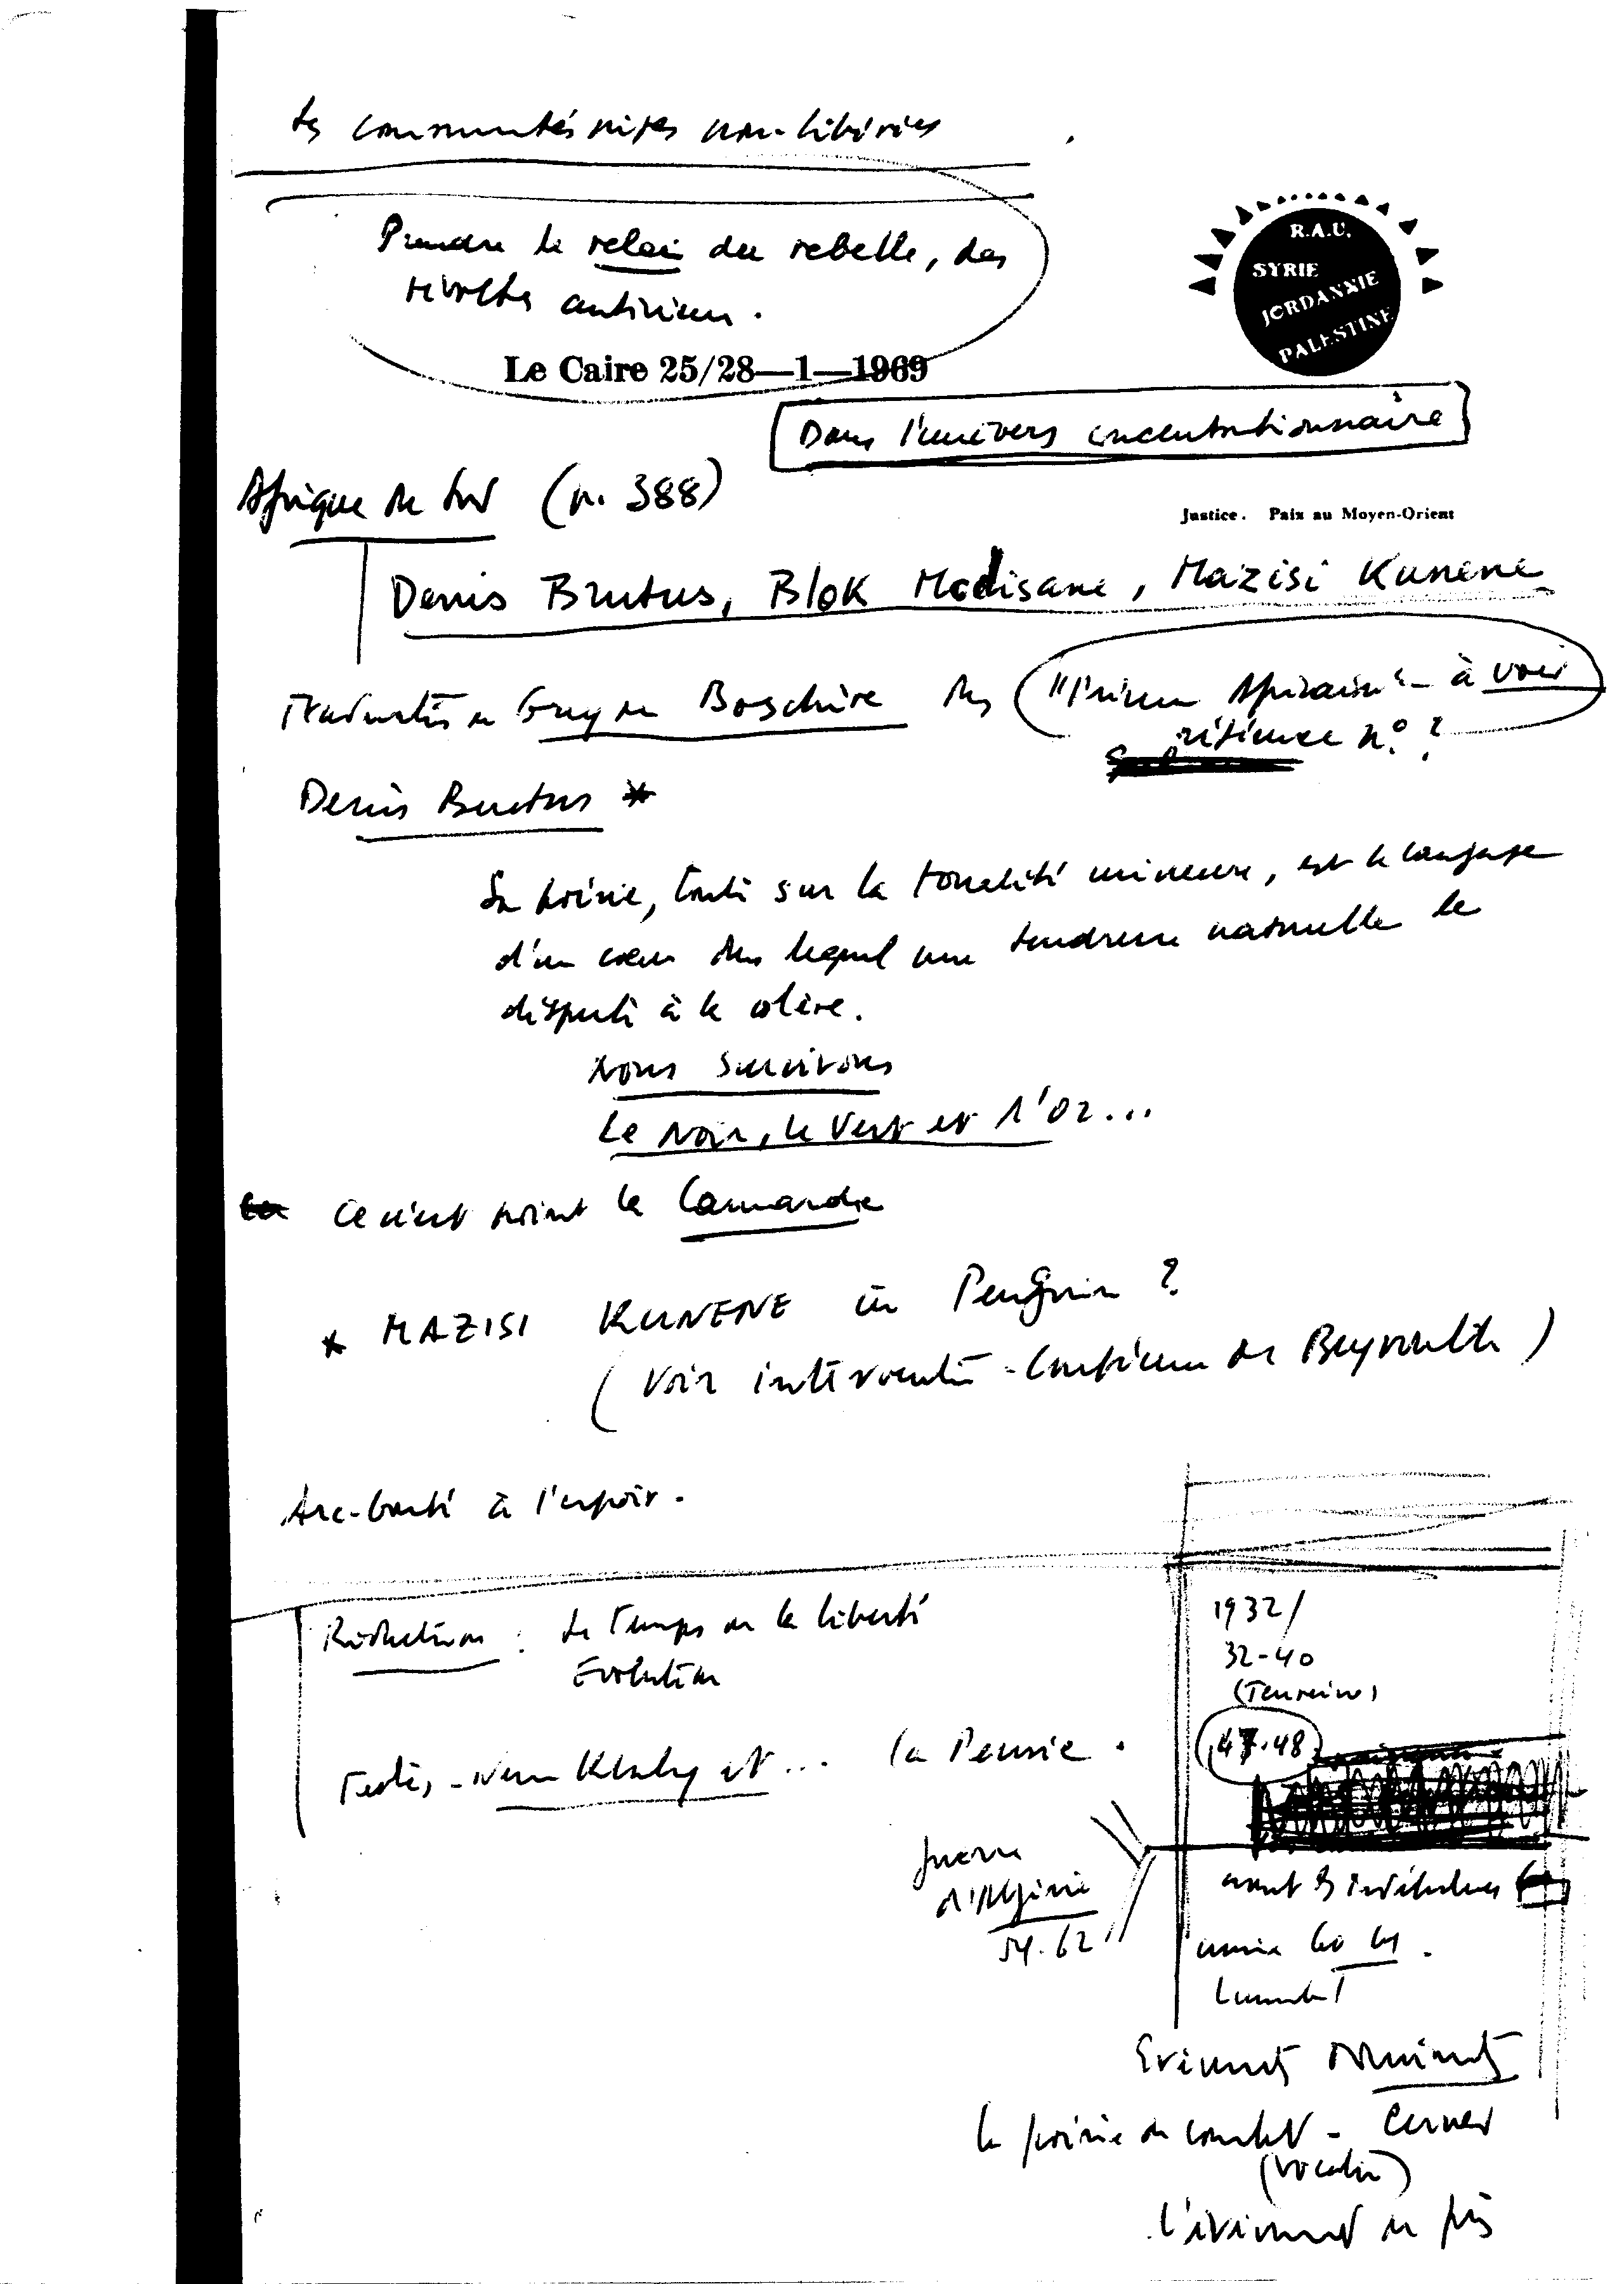 Les communautés noires non-libérées
Prendre le relai du rebelle, des
révoltes antérieures.
R.A.U.
SYRIE
JORDANNIE
PALESTINE
Le Caire 25/28—1—1969
Dans l'univers concentrationnaire
Afrique du Sud (n. 388)
Justice. Paix au Moyen-Orient
Denis Brutus, Blok Modisane, Mazisi Kunene
Guy de Boschère des "Présence Africaine" - à voir
référence n°?
Denis Brutus *
Sa poésie, toute sur la tonalité mineure, est le langage
d'un cœur dans lequel une tendresse naturelle le
dispute à la colère.
Nous survivons
Le Noir, le Vert et l'Or...
Ce n'est point la
* MAZISI KUNENE in Penguin ?
(Voir intervention - Conférence de Beyrouth)
Arc-bouté à l'espoir.
Rédaction : Le Temps de la liberté
Evolution
Textes, et ... la Pensée.
1932/
32-40
47.48
guerre
d'Algérie
54.62
avant les indépendances
année 60 61.
Evénements
la poésie de combat - cerner
l'événement de près